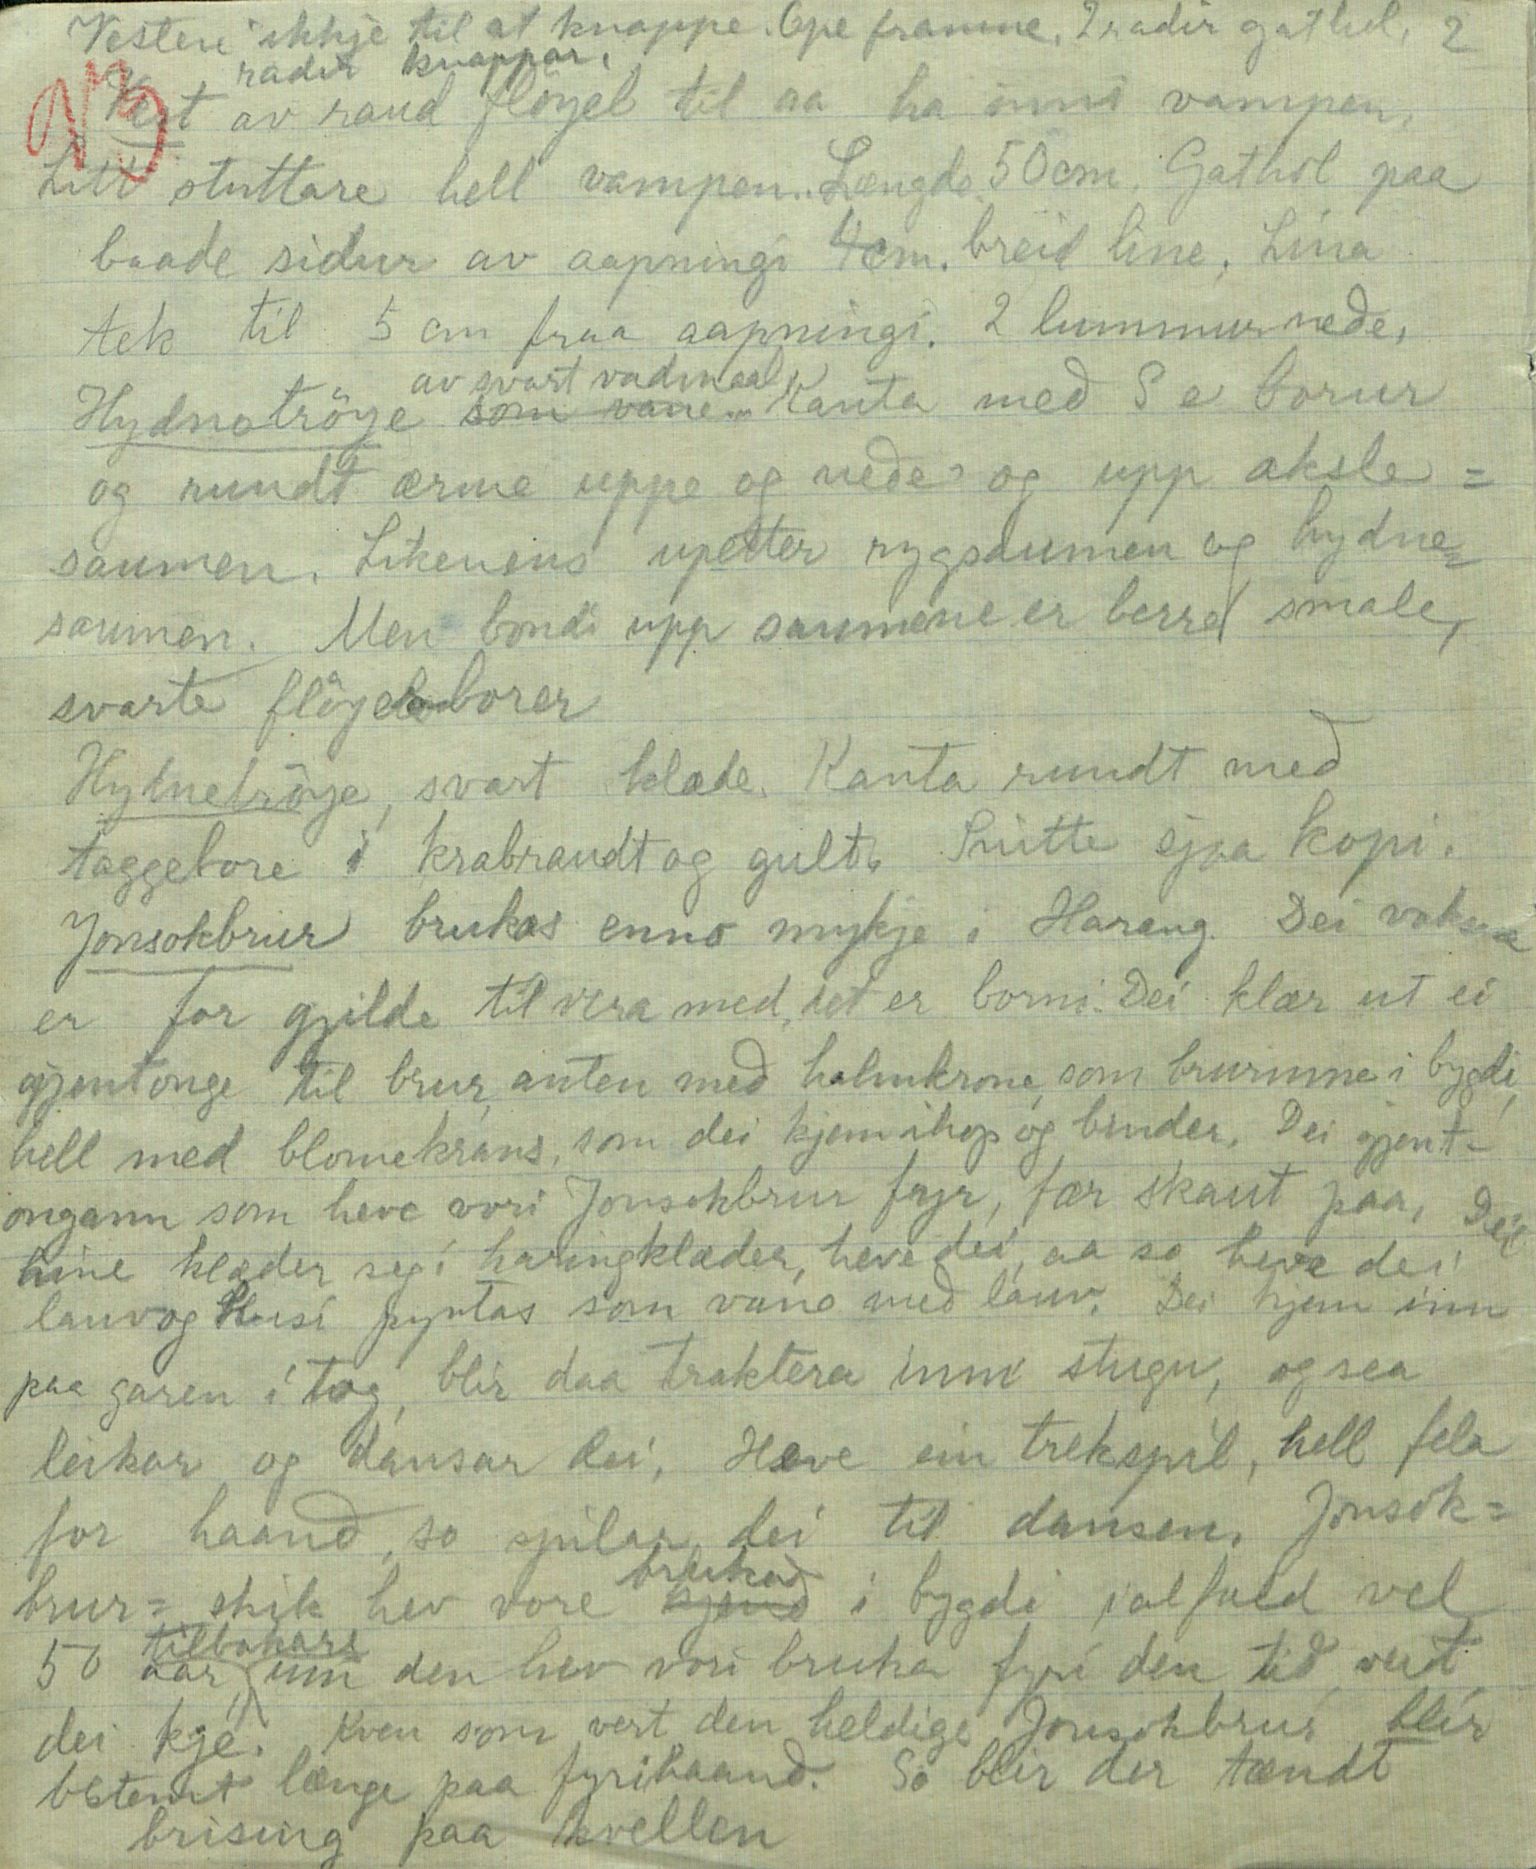 Vesten ikkje til at knappe. Ope framme, 2 radir gathol, 2
radir knappar.
93
Vest av raud flöyel til aa ha inni vampen,
Litt stuttare hell vampen. Længde 50 cm. Gathol paa
baade sidur av aapningi 4 cm. breid line, Lina
tek til 5 cm fraa aapningi. 2 lummur nede,
av svart vadmaal,
Hydnatröye som vane. Kanta með S a borur
og rundt ærme uppe og neðe og upp aksle=
saumen. Likeneins upetter rygsaumen og hydne=
saumen. Men bondi upp saumene er berre smale,
svarte flöyelsborer
Hydnetröye, svart klæde. Kanta rundt með
taggebore i krabraudt og gult. Snitte sjaa kopi.
Jonsokbrur brukas enno mykje i Hareng. Dei vaksne
er for gjilde til vera med, det er borni. Dei klær ut ei
gjentonge til brur, anten með halmkrone, som brurinne i bygdi,
hell med blomekrans, som dei kjem ihop og binder. Dei gjent-
ongann som heve vori Jonsokbrur fyr, fær skaut paa, Dei
hine klæder seg i haringklæder, heve dei, aa so heve dei
lauv og Husi pyntas som vane með lauv. Dei kjem inn
paa garen i tog, blir daa traktera inni stugu, og sea
leikar og dansar dei, Heve ein trekspil, hell fela
for haanð, so spilar dei til dansen. Jonsok=
brukað
brur= skik hev vore kjend i bygdi ialfald vel
tilbakars
50 aar, um den hev vori bruka fyri den tið veit
dei kje. Kven som vert den heldige Jonsokbrur blir
bstemt længe paa fyrihaand. So blir der tændt
brising paa kvellen